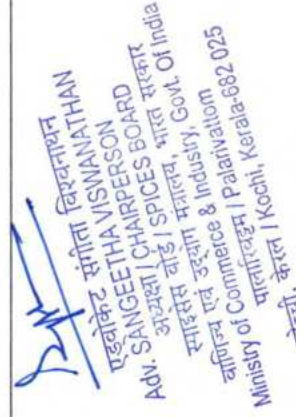 एडवोकेट संगीता विश्वनाथन
Adv. SANGEETHA VISWANATHAN
अध्यक्षा / CHAIRPERSON
स्पाइसेस बोर्ड / SPICES BOARD
वाणिज्य एवं उद्योग मंत्रालय, भारत सरकार
Ministry of Commerce & Industry, Govt. Of India
पलारिवट्टम / Palarivattom
कोच्ची, केरल / Kochi, Kerala-682 025